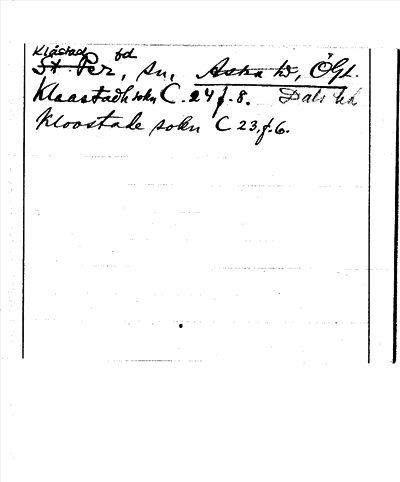 Klåstad fd
St Per, sn, Aska hd, Ögl.
Klaastadh sokn C. 24 f. 8. Dals hd
Kloostade sokn C 23, f. 6.